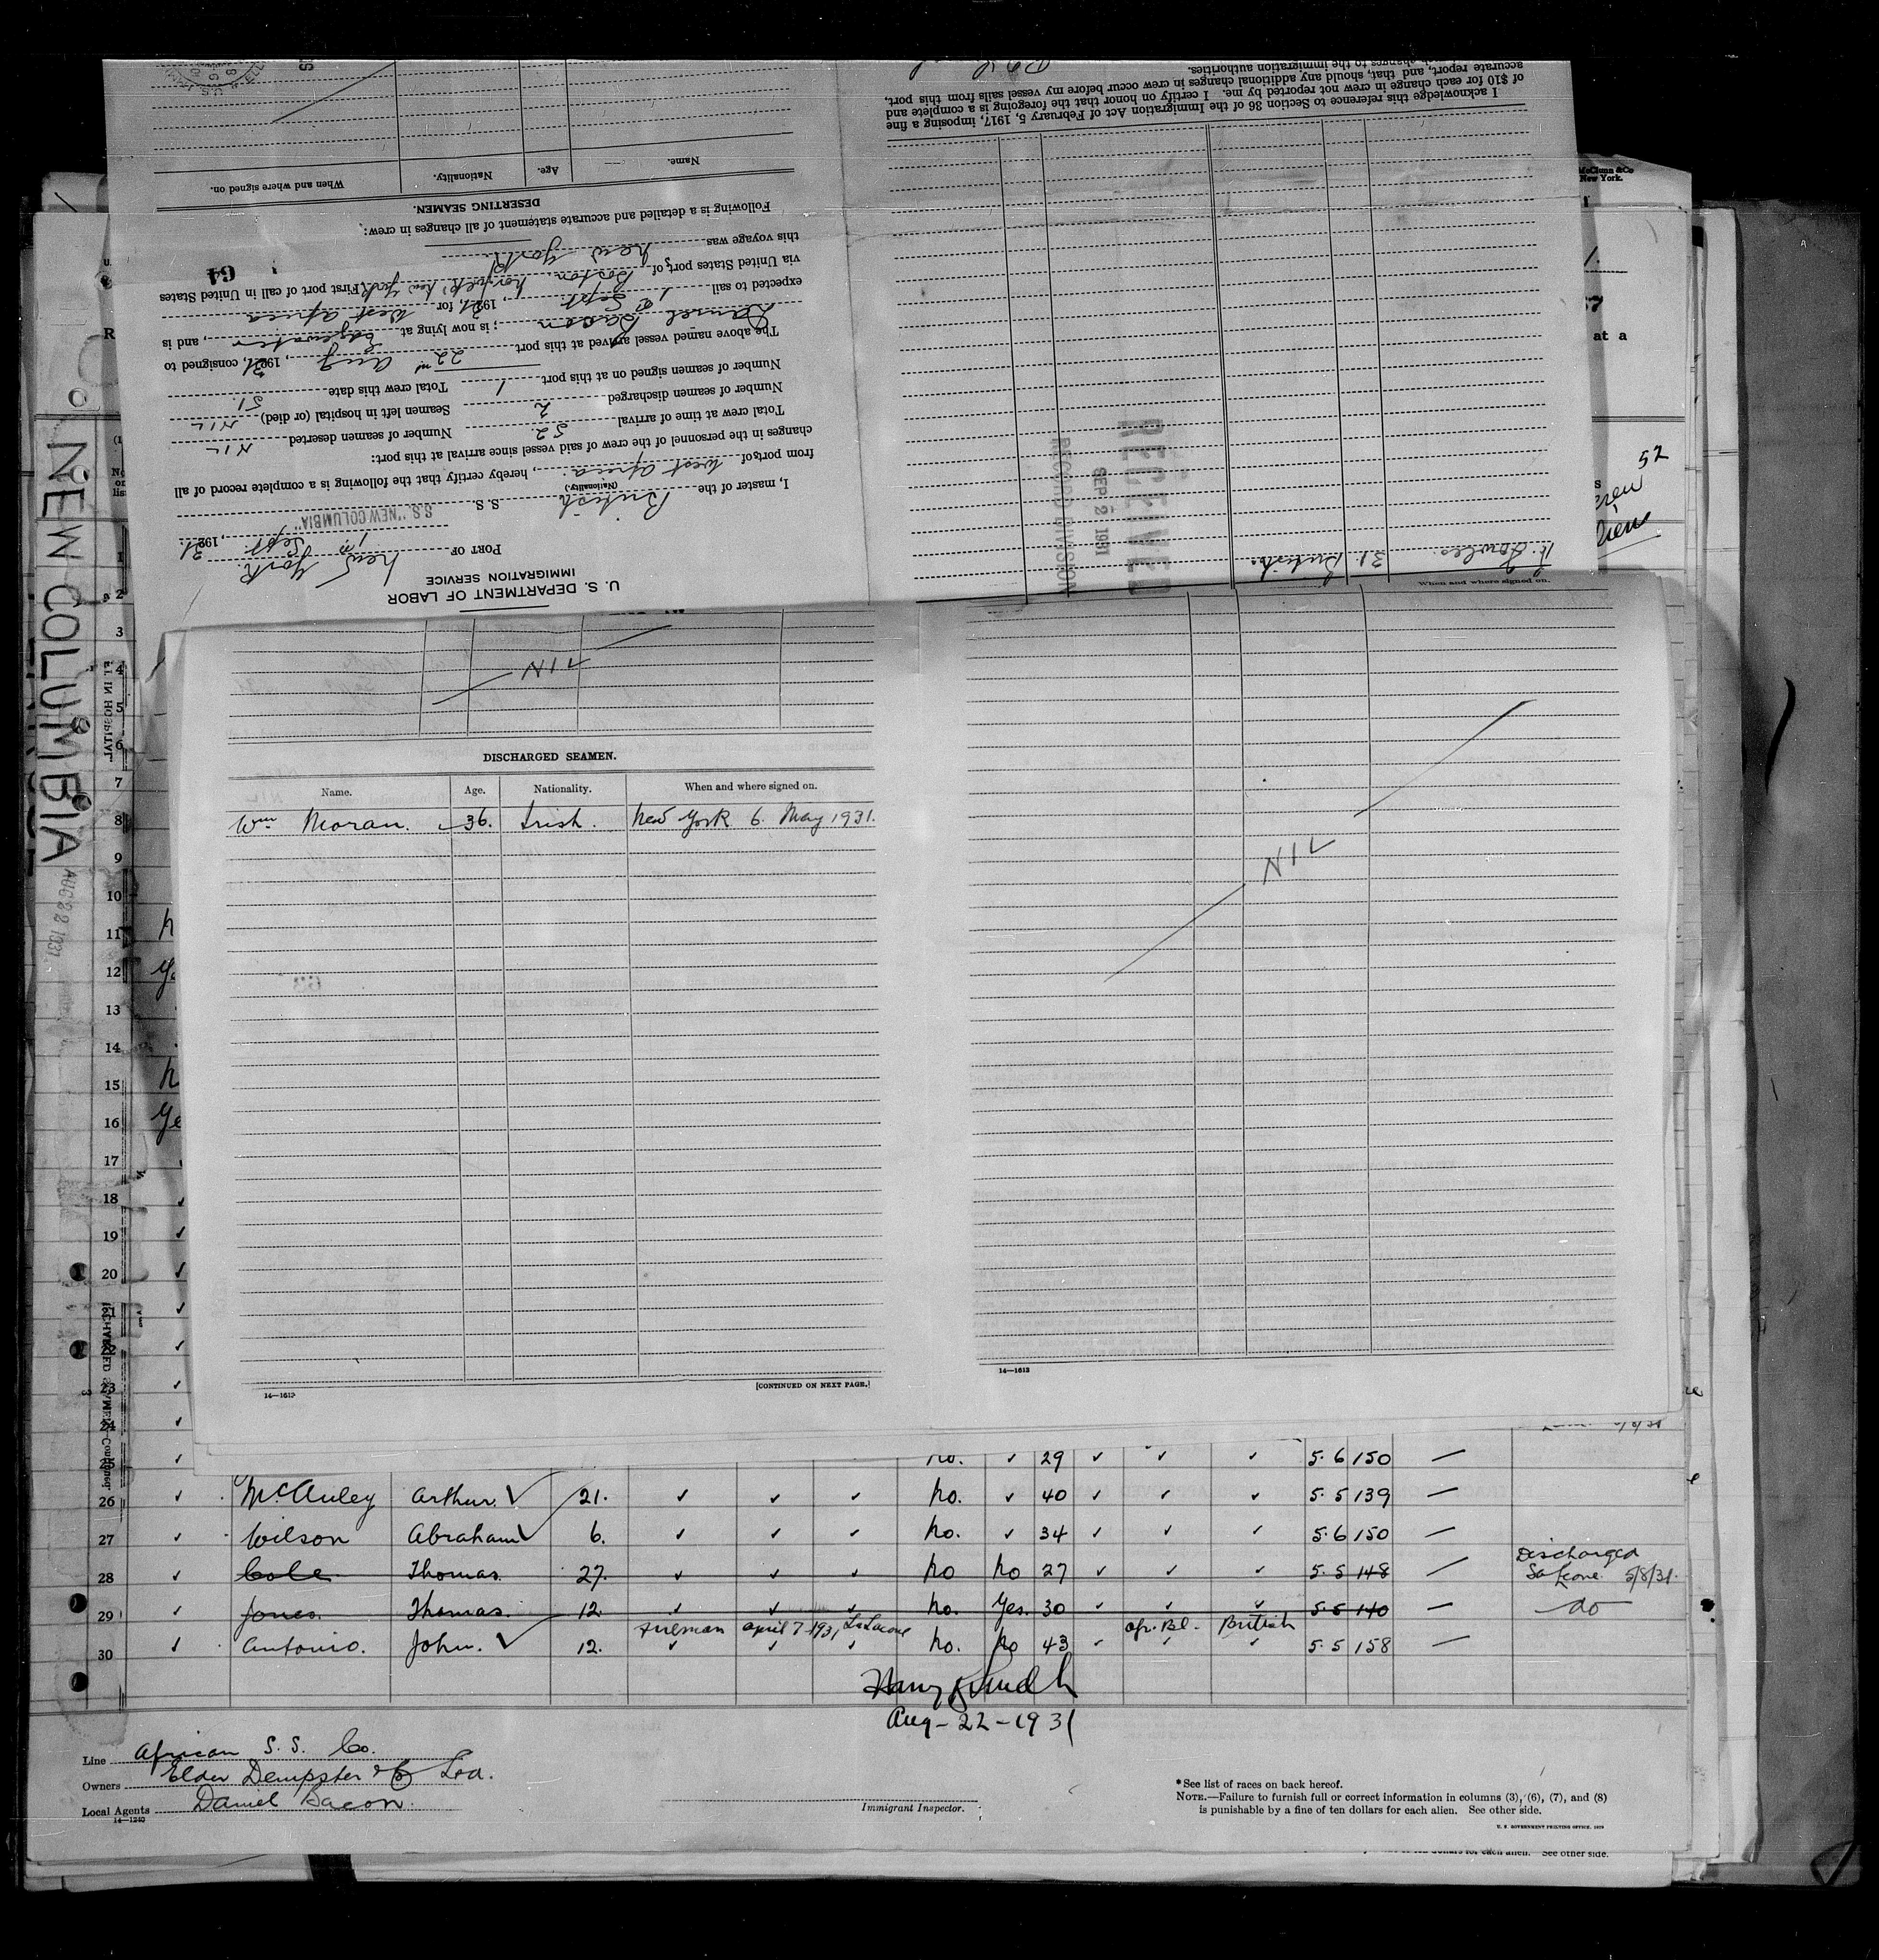 I acknowledge this reference to Section 36 of the Immigration Act of February 5, 1917, imposing a fine
of $10 for each change in crew not reported by me. I certify on honor that the foregoing is a complete and
accurate report, and that, should any additional changes in crew occur before my vessel sails from this port,
changes to the immigration authorities.
U. S. DEPARTMENT OF LABOR
IMMIGRATION SERVICE
PORT OF New York.
Sept 1st, 1931
I, master of the British S. S. S.S. "NEW COLUMBIA"
(Nationality)
from ports of West Africa, hereby certify that the following is a complete record of all
changes in the personnel of the crew of said vessel since arrival at this port:
Total crew at time of arrival 52 Number of seamen deserted NIL
Number of seamen discharged 2 Seamen left in hospital (or died) NIL
Number of seamen signed on at this port 1 Total crew this date 51.
The above named vessel arrived at this port 22nd Aug, 1931, consigned to
Daniel Bacon; is now lying at Edgewater, and is
expected to sail 1st Sept., 1931, for West Africa
via United States ports of Boston, Norfolk, New York. First port of call in United States
this voyage was New York.
64
Following is a detailed and accurate statement of all changes in crew:
DESERTING SEAMEN.
Name. Age. Nationality. When and where signed on.
When and where signed on.
31. British.
RECEIVED
SEP 2 1931
RECORD DIVISION
McClunn & Co
New York.
at a
52
NEW COLUMBIA
AUG 22 1931
NIL
DISCHARGED SEAMEN.
Name. Age. Nationality. When and where signed on.
Wm Moran. 36. Irish. New York 6. May 1931.
14—1613 [CONTINUED ON NEXT PAGE.]
NIL
14—1613
2
3
4
5
6
7
8
9
10
11
12
13
14
15
16
17
18
19
20
21
22
23
24
25 ✓ no. ✓ 29 ✓ ✓ ✓ 5.6 150 —
26 ✓ McAuley Arthur. ✓ 21. ✓ ✓ ✓ No. ✓ 40 ✓ ✓ ✓ 5.5 139 —
27 ✓ Wilson Abraham ✓ 6. ✓ ✓ ✓ No. ✓ 34 ✓ ✓ ✓ 5.6 150 —
28 ✓ Cole Thomas. 27. ✓ ✓ ✓ No No 27 ✓ ✓ ✓ 5.5 148 — Discharged
Sa Leone 5/8/31.
29 ✓ Jones. Thomas. 12. ✓ ✓ ✓ No. Yes. 30 ✓ ✓ ✓ 5.5 140 — do
Fireman April 7-1931 Sa Leone Afr. Bl. British
30 ✓ Antonio. John. ✓ 12. ✓ ✓ ✓ No. No 43 ✓ ✓ ✓ 5.5 158 —
Aug-22-1931
Line African S. S. Co.
Owners Elder Dempster & Co Ltd.
Local Agents Daniel Bacon.
14—1240
Immigrant Inspector.
*See list of races on back hereof.
NOTE.—Failure to furnish full or correct information in columns (3), (6), (7), and (8)
is punishable by a fine of ten dollars for each alien. See other side.
U. S. GOVERNMENT PRINTING OFFICE. 1929
See other side.